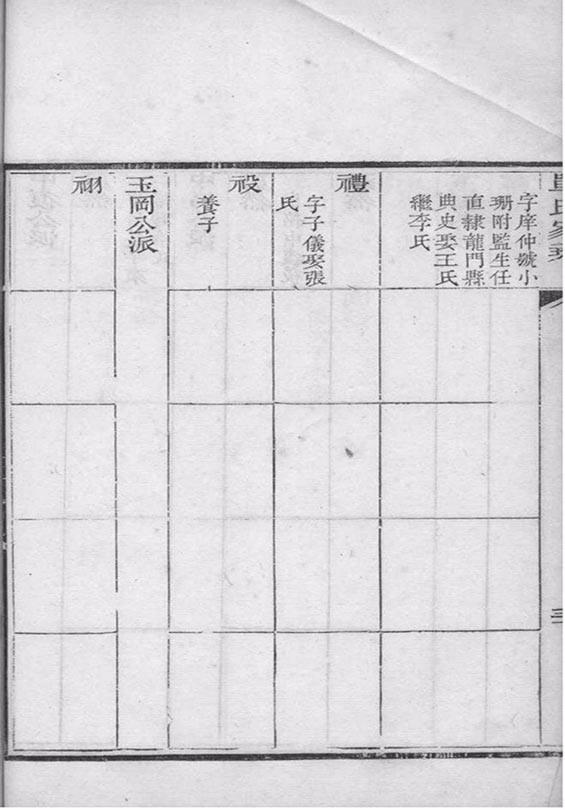 氏家乘
字庠仲號小
珊附監生任
直隸龍門縣
典史娶王氏
繼李氏
禮
字子儀娶張
氏
祋
養子
玉岡公派
祤